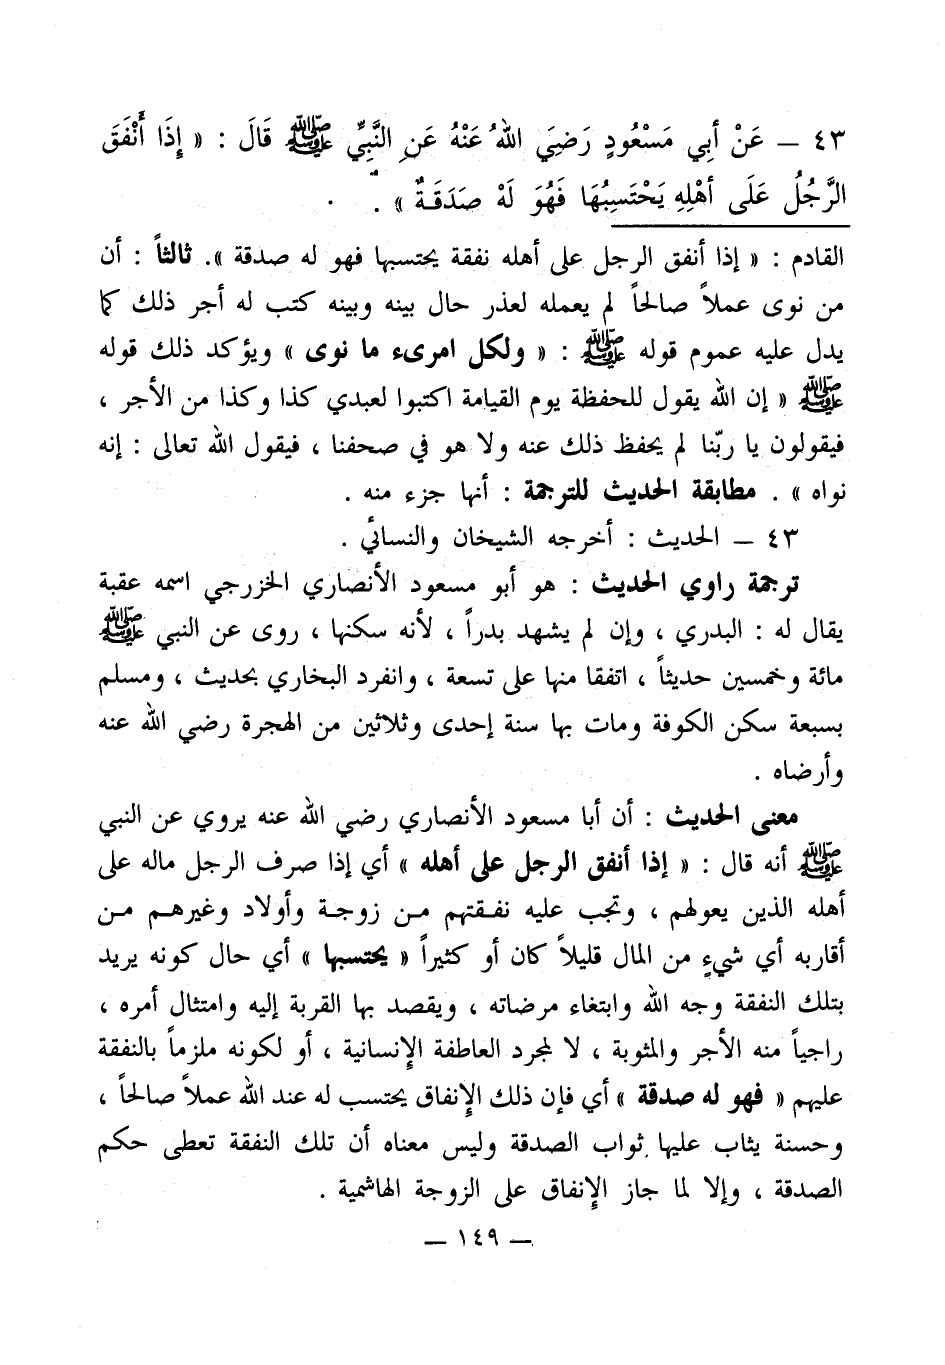 ٤٣ – عَنْ أَبِي مَسْعُودٍ رَضِيَ اللهُ عَنْهُ عَنِ النَّبِيِّ ﷺ قَالَ : « إِذَا أَنْفَقَ
الرَّجُلُ عَلَى أَهْلِهِ يَحْتَسِبُهَا فَهُوَ لَهُ صَدَقَةٌ » .
القادم : « إذا أنفق الرجل على أهله نفقة يحتسبها فهو له صدقة ». ثالثاً : أن
من نوى عملاً صالحاً لم يعمله لعذر حال بينه وبينه كتب له أجر ذلك كما
يدل عليه عموم قوله ﷺ : « ولكل امرىء ما نوى » ويؤكد ذلك قوله
ﷺ « إن الله يقول للحفظة يوم القيامة اكتبوا لعبدي كذا وكذا من الأجر ،
فيقولون يا ربّنا لم يحفظ ذلك عنه ولا هو في صحفنا ، فيقول الله تعالى : إنه
نواه » . مطابقة الحديث للترجمة : أنها جزء منه .
٤٣ – الحديث : أخرجه الشيخان والنسائي .
ترجمة راوي الحديث : هو أبو مسعود الأنصاري الخزرجي اسمه عقبة
يقال له : البدري ، وإن لم يشهد بدراً ، لأنه سكنها ، روى عن النبي ﷺ
مائة وخمسين حديثاً ، اتفقا منها على تسعة ، وانفرد البخاري بحديث ، ومسلم
بسبعة سكن الكوفة ومات بها سنة إحدى وثلاثين من الهجرة رضي الله عنه
وأرضاه .
معنى الحديث : أن أبا مسعود الأنصاري رضي الله عنه يروي عن النبي
ﷺ أنه قال : « إذا أنفق الرجل على أهله » أي إذا صرف الرجل ماله على
أهله الذين يعولهم ، وتجب عليه نفقتهم من زوجة وأولاد وغيرهم من
أقاربه أي شيءٍ من المال قليلاً كان أو كثيراً « يحتسبها » أي حال كونه يريد
بتلك النفقة وجه الله وابتغاء مرضاته ، ويقصد بها القربة إليه وامتثال أمره ،
راجياً منه الأجر والمثوبة ، لا لمجرد العاطفة الإنسانية ، أو لكونه ملزماً بالنفقة
عليهم « فهو له صدقة » أي فإن ذلك الإنفاق يحتسب له عند الله عملاً صالحاً ،
وحسنة يثاب عليها ثواب الصدقة وليس معناه أن تلك النفقة تعطى حكم
الصدقة ، وإلا لما جاز الإنفاق على الزوجة الهاشمية .
– ١٤٩ –